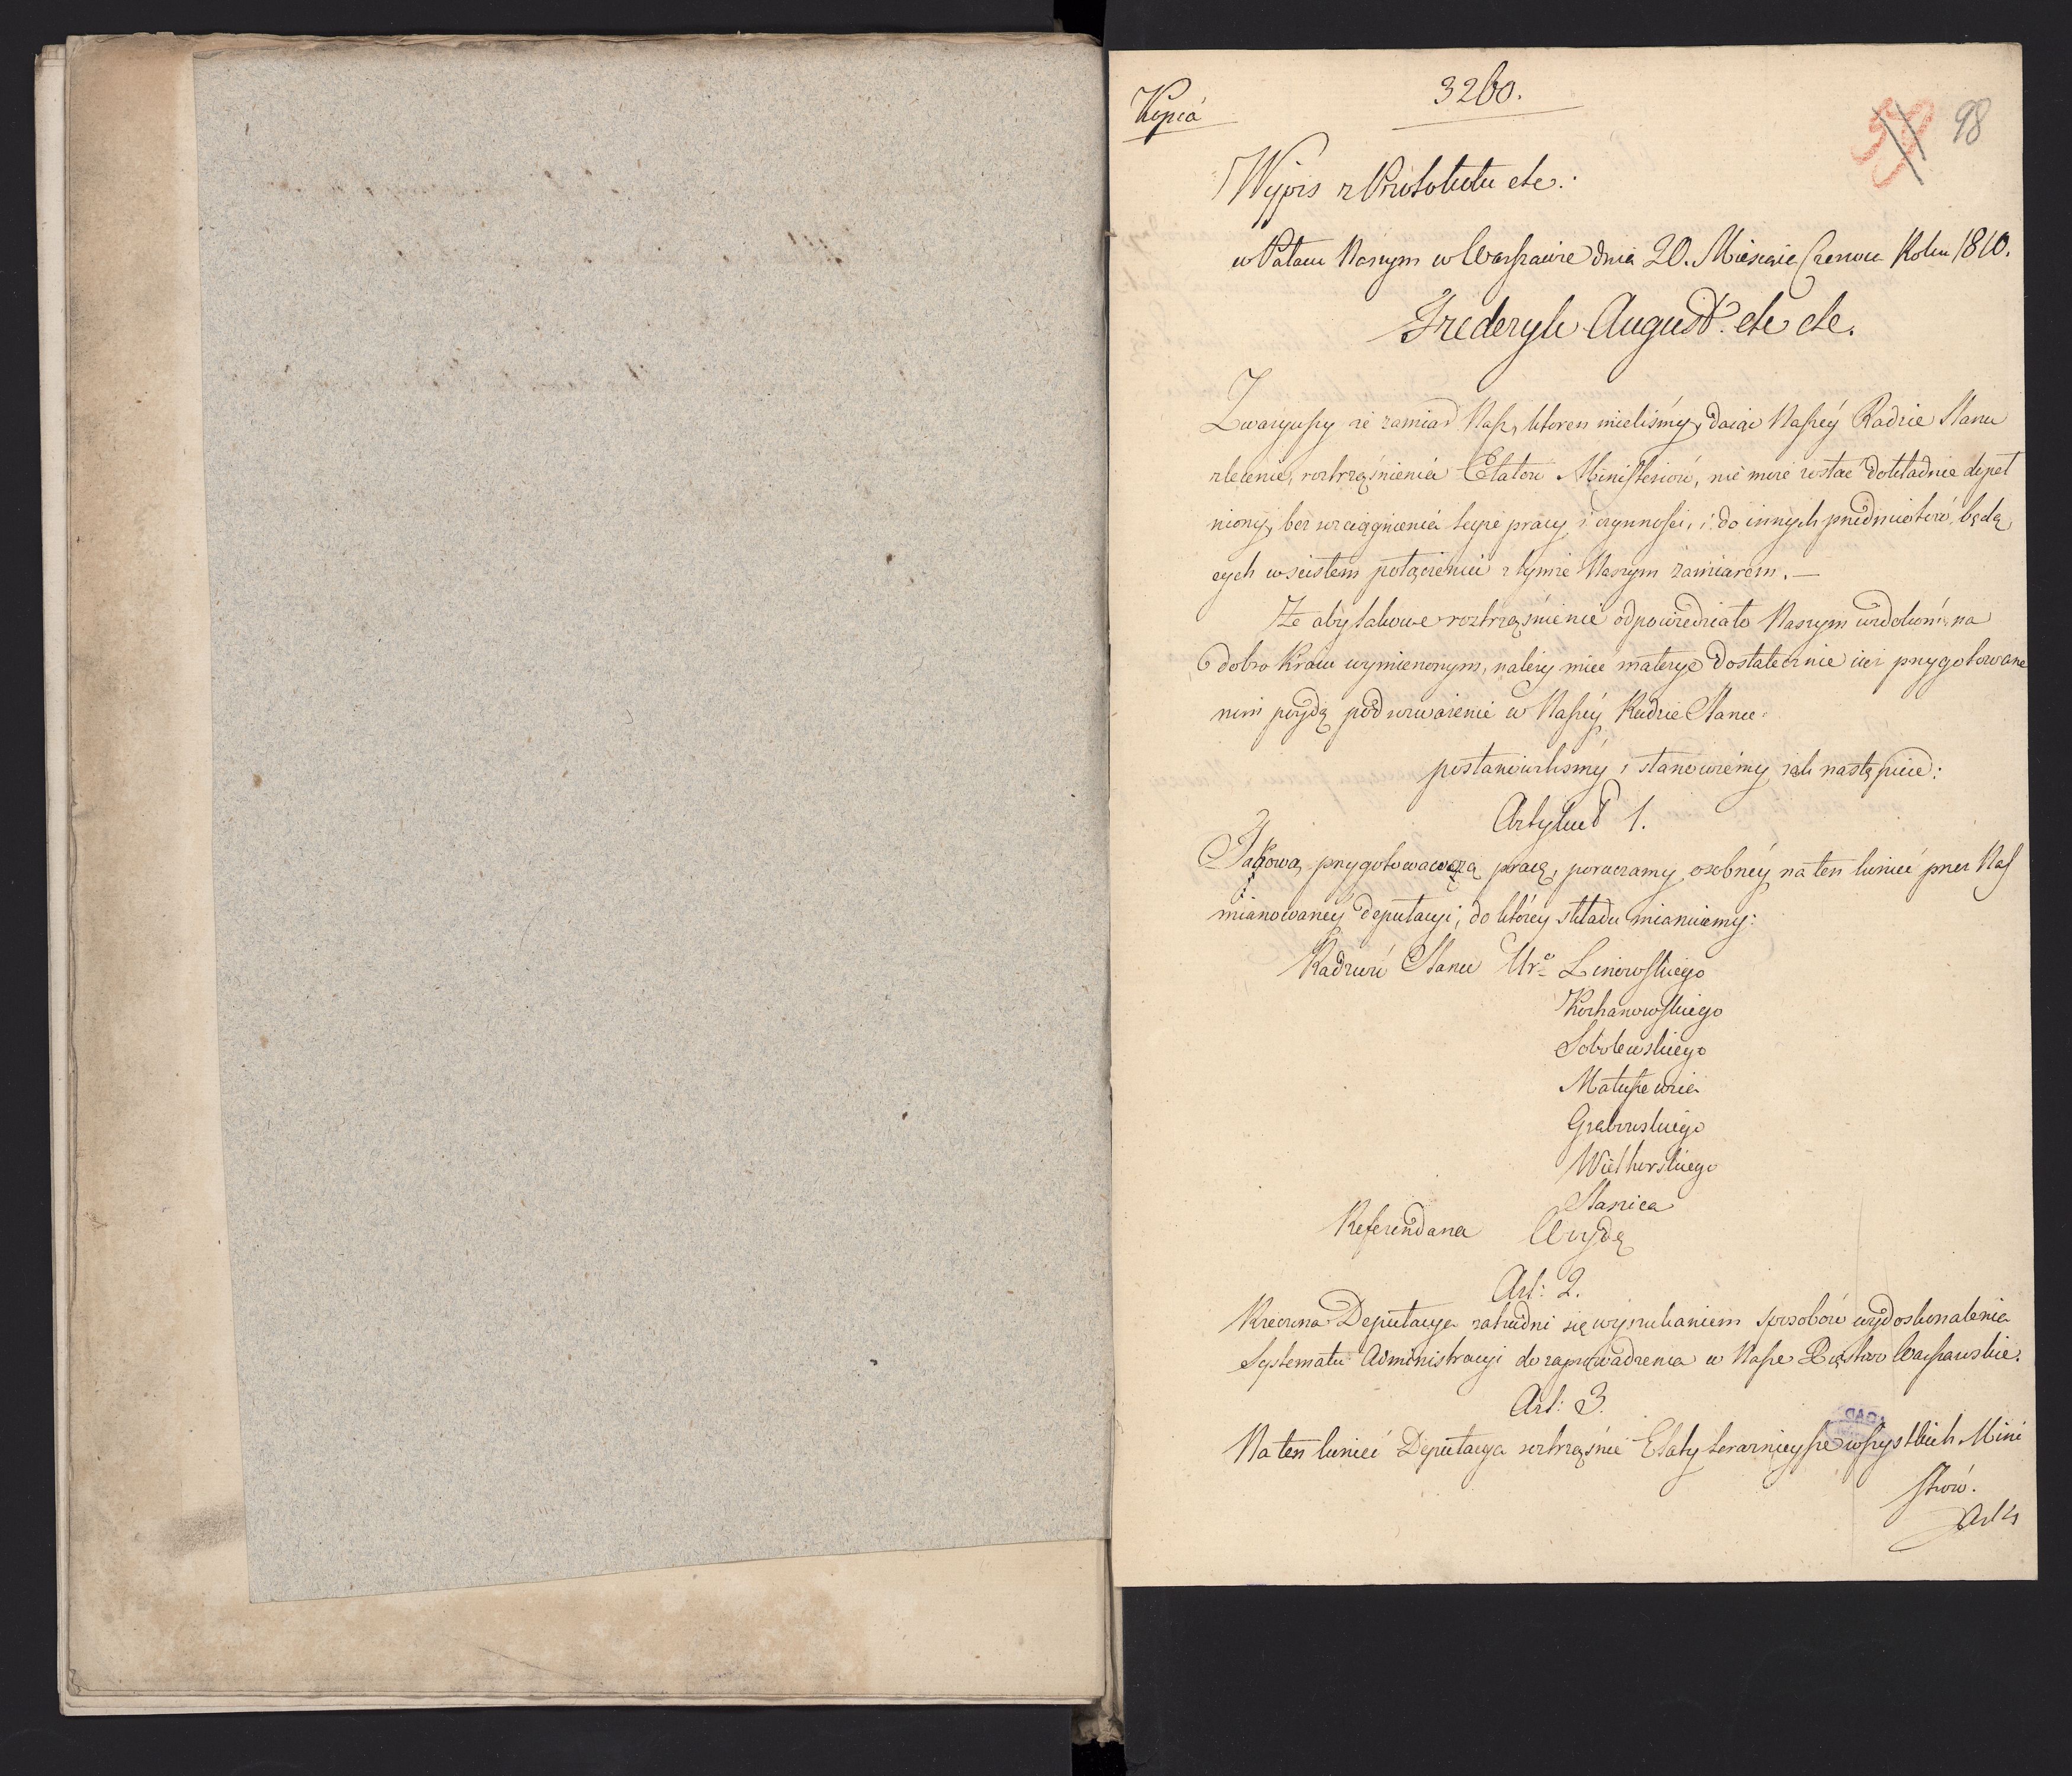 Kopia
3260.
59 98
Wypis z Protokułu etc:
w Pałacu Naszym w Warszawie dnia 20. Miesiąca Czerwca Roku 1810.
Frederyk August. etc etc.
Zważywszy że zamiar Nasz, któren mieliśmy, daiąc Naszéy Radzie Stanu
zlecenie, roztrząśnienia Etatów Ministeriów, nie może zostać dokładnie dopeł
niony, bez rozciągnienia teyże pracy i czynności, i do innych przedmiotów, będą
cych w ścisłem połączeniu z tymże Naszym zamiarem. —
Że aby takowe roztrząśnienie odpowiedziało Naszym widokom na
dobro Kraiu wymierzonym, należy mieć materye dostatecznie iuż przygotowane
nim przydą pod rozważenie w Naszéy Radzie Stanu.
postanowiliśmy i stanowiemy iak następuie:
Artykuł 1.
Takową przygotowawczą pracę, poruczamy osobnéy na ten koniec przez Nas
mianowanéy Deputacyi, do któréy składu mianuiemy:
Radców Stanu Ur: Linowskiego
Kochanowskiego
Sobolewskiego
Matuszewica
Grabowskiego
Wielhorskiego
Stasica
Referendarza Woydę
Art: 2.
Rzeczona Deputacya zatrudni się wyszukaniem sposobów wydoskonalenia
Systematu Administracyi do zaprowadzenia w Nasze Xięstwo Warszawskie.
Art: 3.
AGAD
Na ten koniec Deputacya roztrząśnie Etaty teraznieysze wszystkich Mini
strów.
Art 4